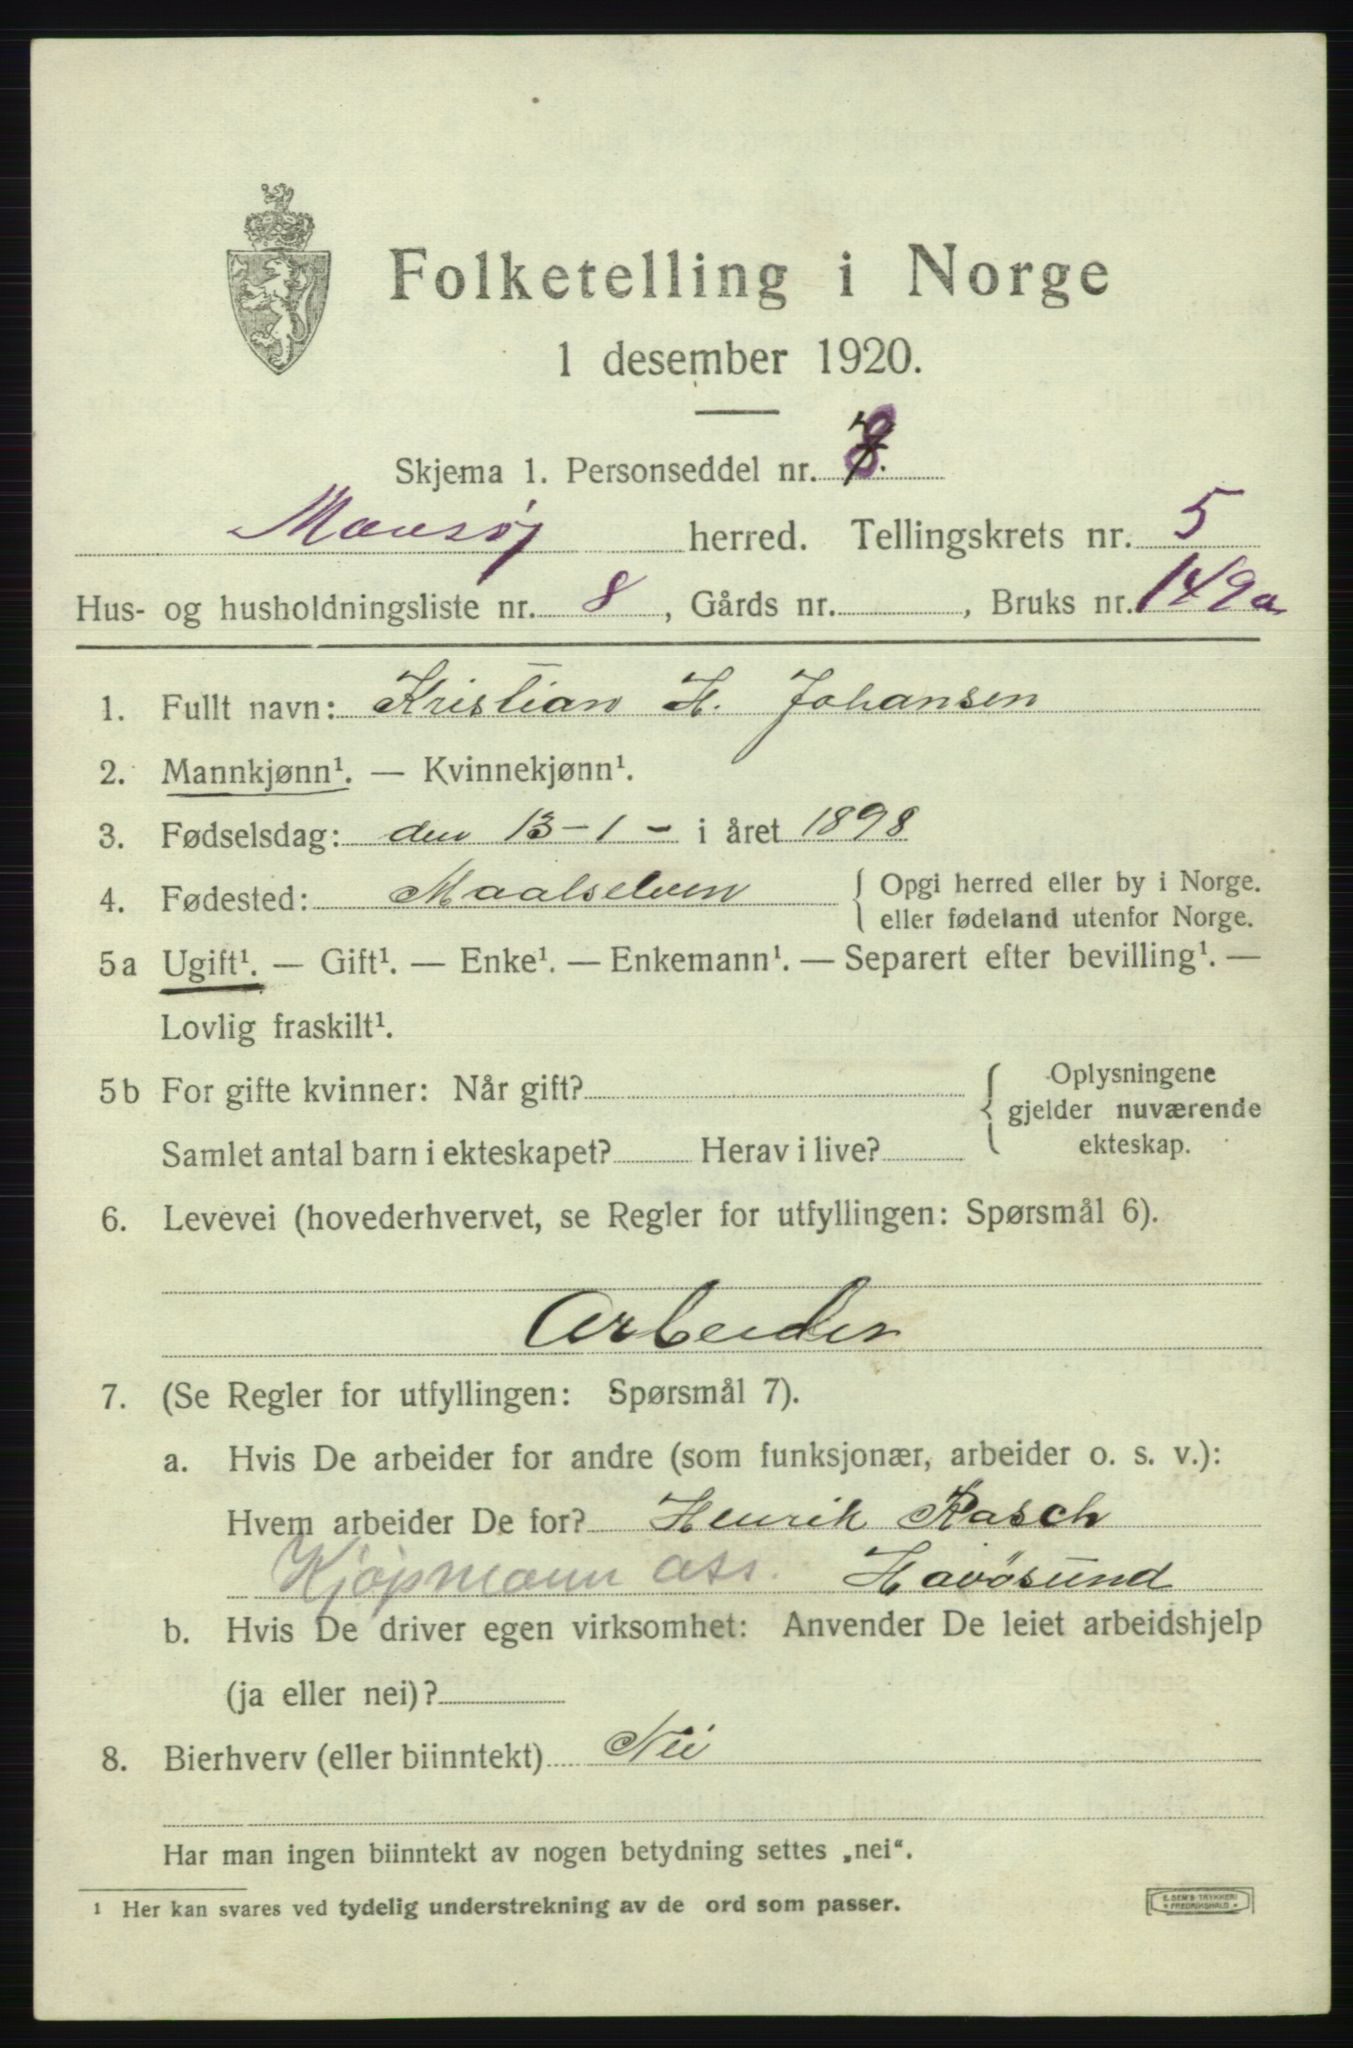 Folketelling i Norge
1 desember 1920.
Skjema 1. Personseddel nr. 8
Maasøy herred. Tellingskrets nr. 5
Hus- og husholdningsliste nr. 8, Gårds nr. , Bruks nr. 149a
1. Fullt navn: Kristian H. Johansen
2. Mannkjønn¹. — Kvinnekjønn¹.
3. Fødselsdag: den 13-1- i året 1898
4. Fødested: Maalselven { Opgi herred eller by i Norge.
eller fødeland utenfor Norge.
5a Ugift¹. — Gift¹. — Enke¹. — Enkemann¹. — Separert efter bevilling¹. —
Lovlig fraskilt¹.
5b For gifte kvinner: Når gift?
Samlet antal barn i ekteskapet? Herav i live?
Oplysningene
gjelder nuværende
ekteskap.
6. Levevei (hovederhvervet, se Regler for utfyllingen: Spørsmål 6).
Arbeider
7. (Se Regler for utfyllingen: Spørsmål 7).
a. Hvis De arbeider for andre (som funksjonær, arbeider o. s. v.):
Hvem arbeider De for? Henrik Rasch
Kjøpmann ass. Havösund
b. Hvis De driver egen virksomhet: Anvender De leiet arbeidshjelp
(ja eller nei)?
8. Bierhverv (eller biinntekt) Nei
Har man ingen biinntekt av nogen betydning settes „nei“.
¹ Her kan svares ved tydelig understrekning av de ord som passer.
E. SEM'S TRYKKERI
FREDRIKSHALD